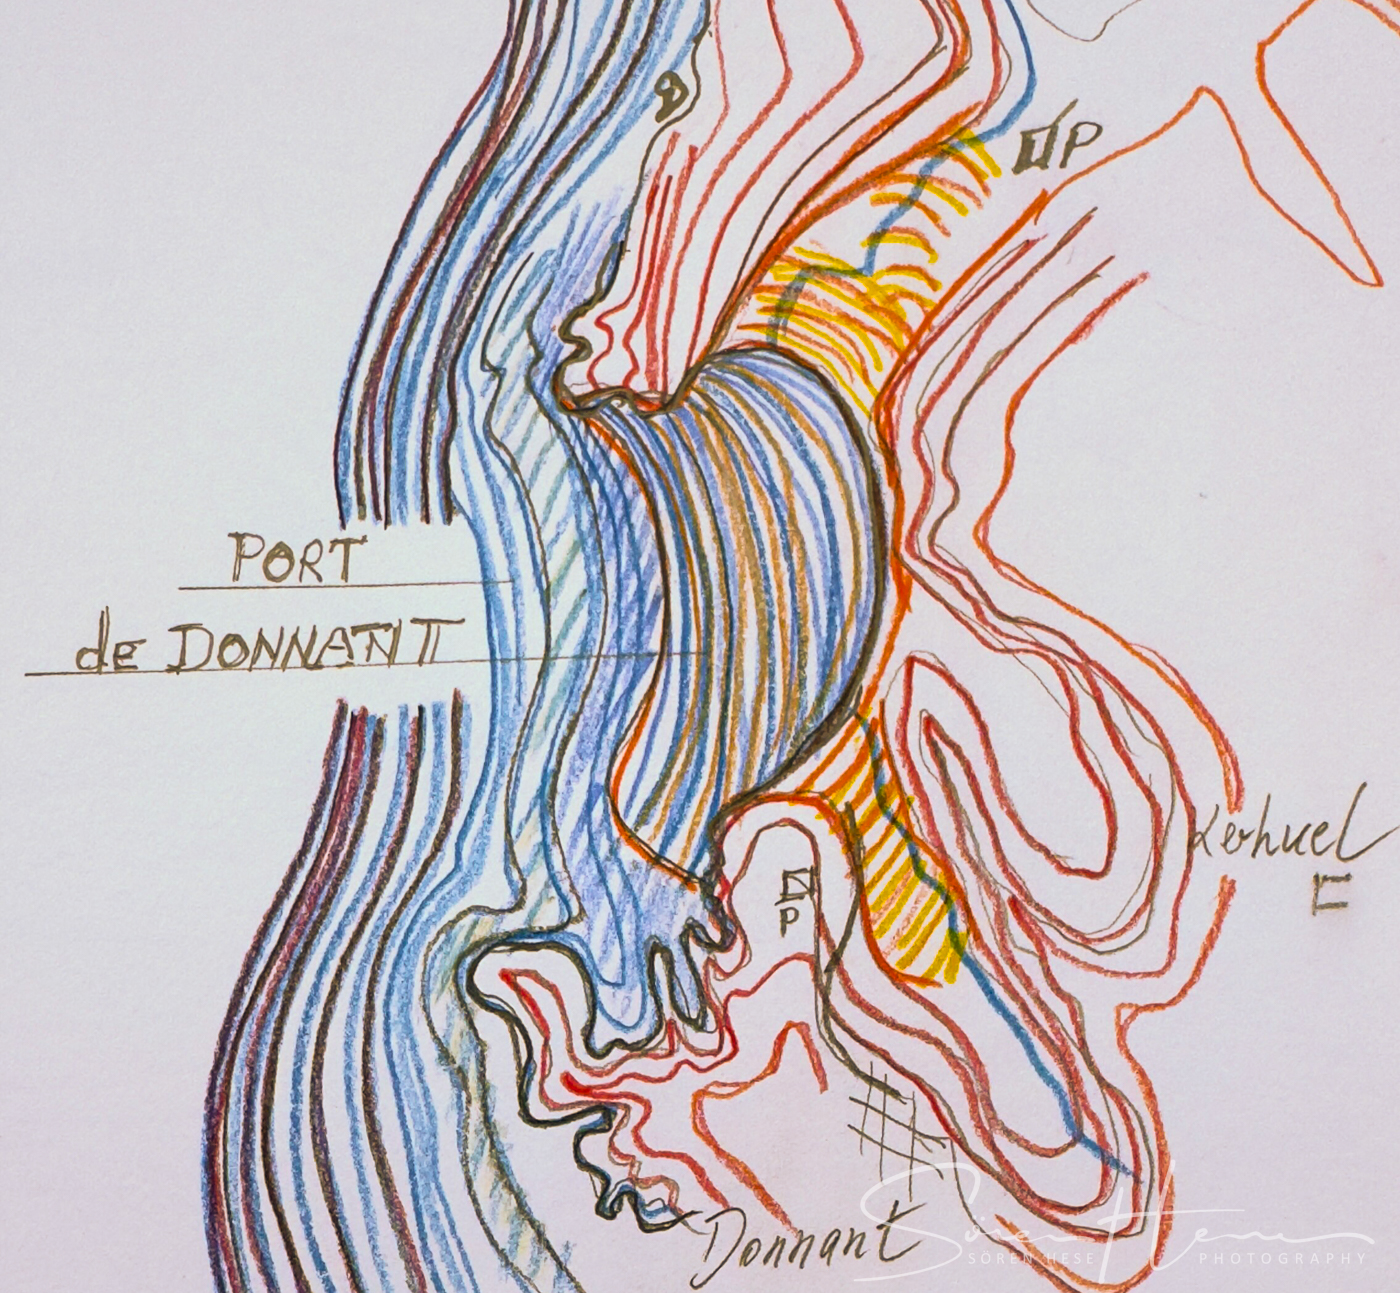 P
PORT
de DONNANT
Kerhuel
P
Donnant
Sören Hese
SÖREN HESE PHOTOGRAPHY